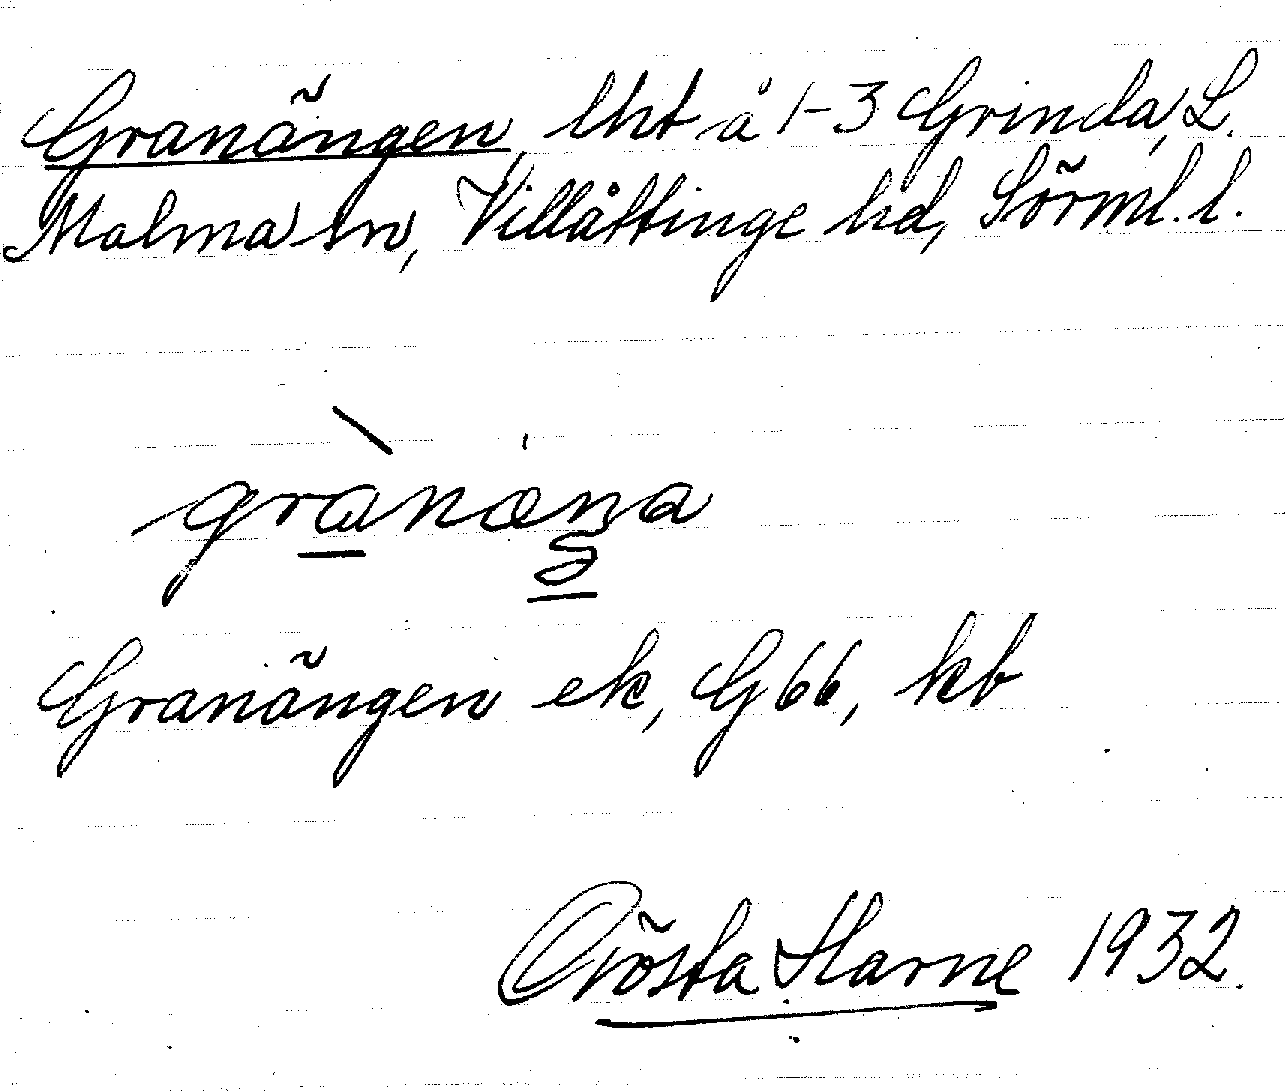 Granängen, lht å 1-3 Grinda, L.
Malma sn, Villåttinge hd, Sörml. l.
Granängen ek, G66, kb
Gösta Harne 1932.